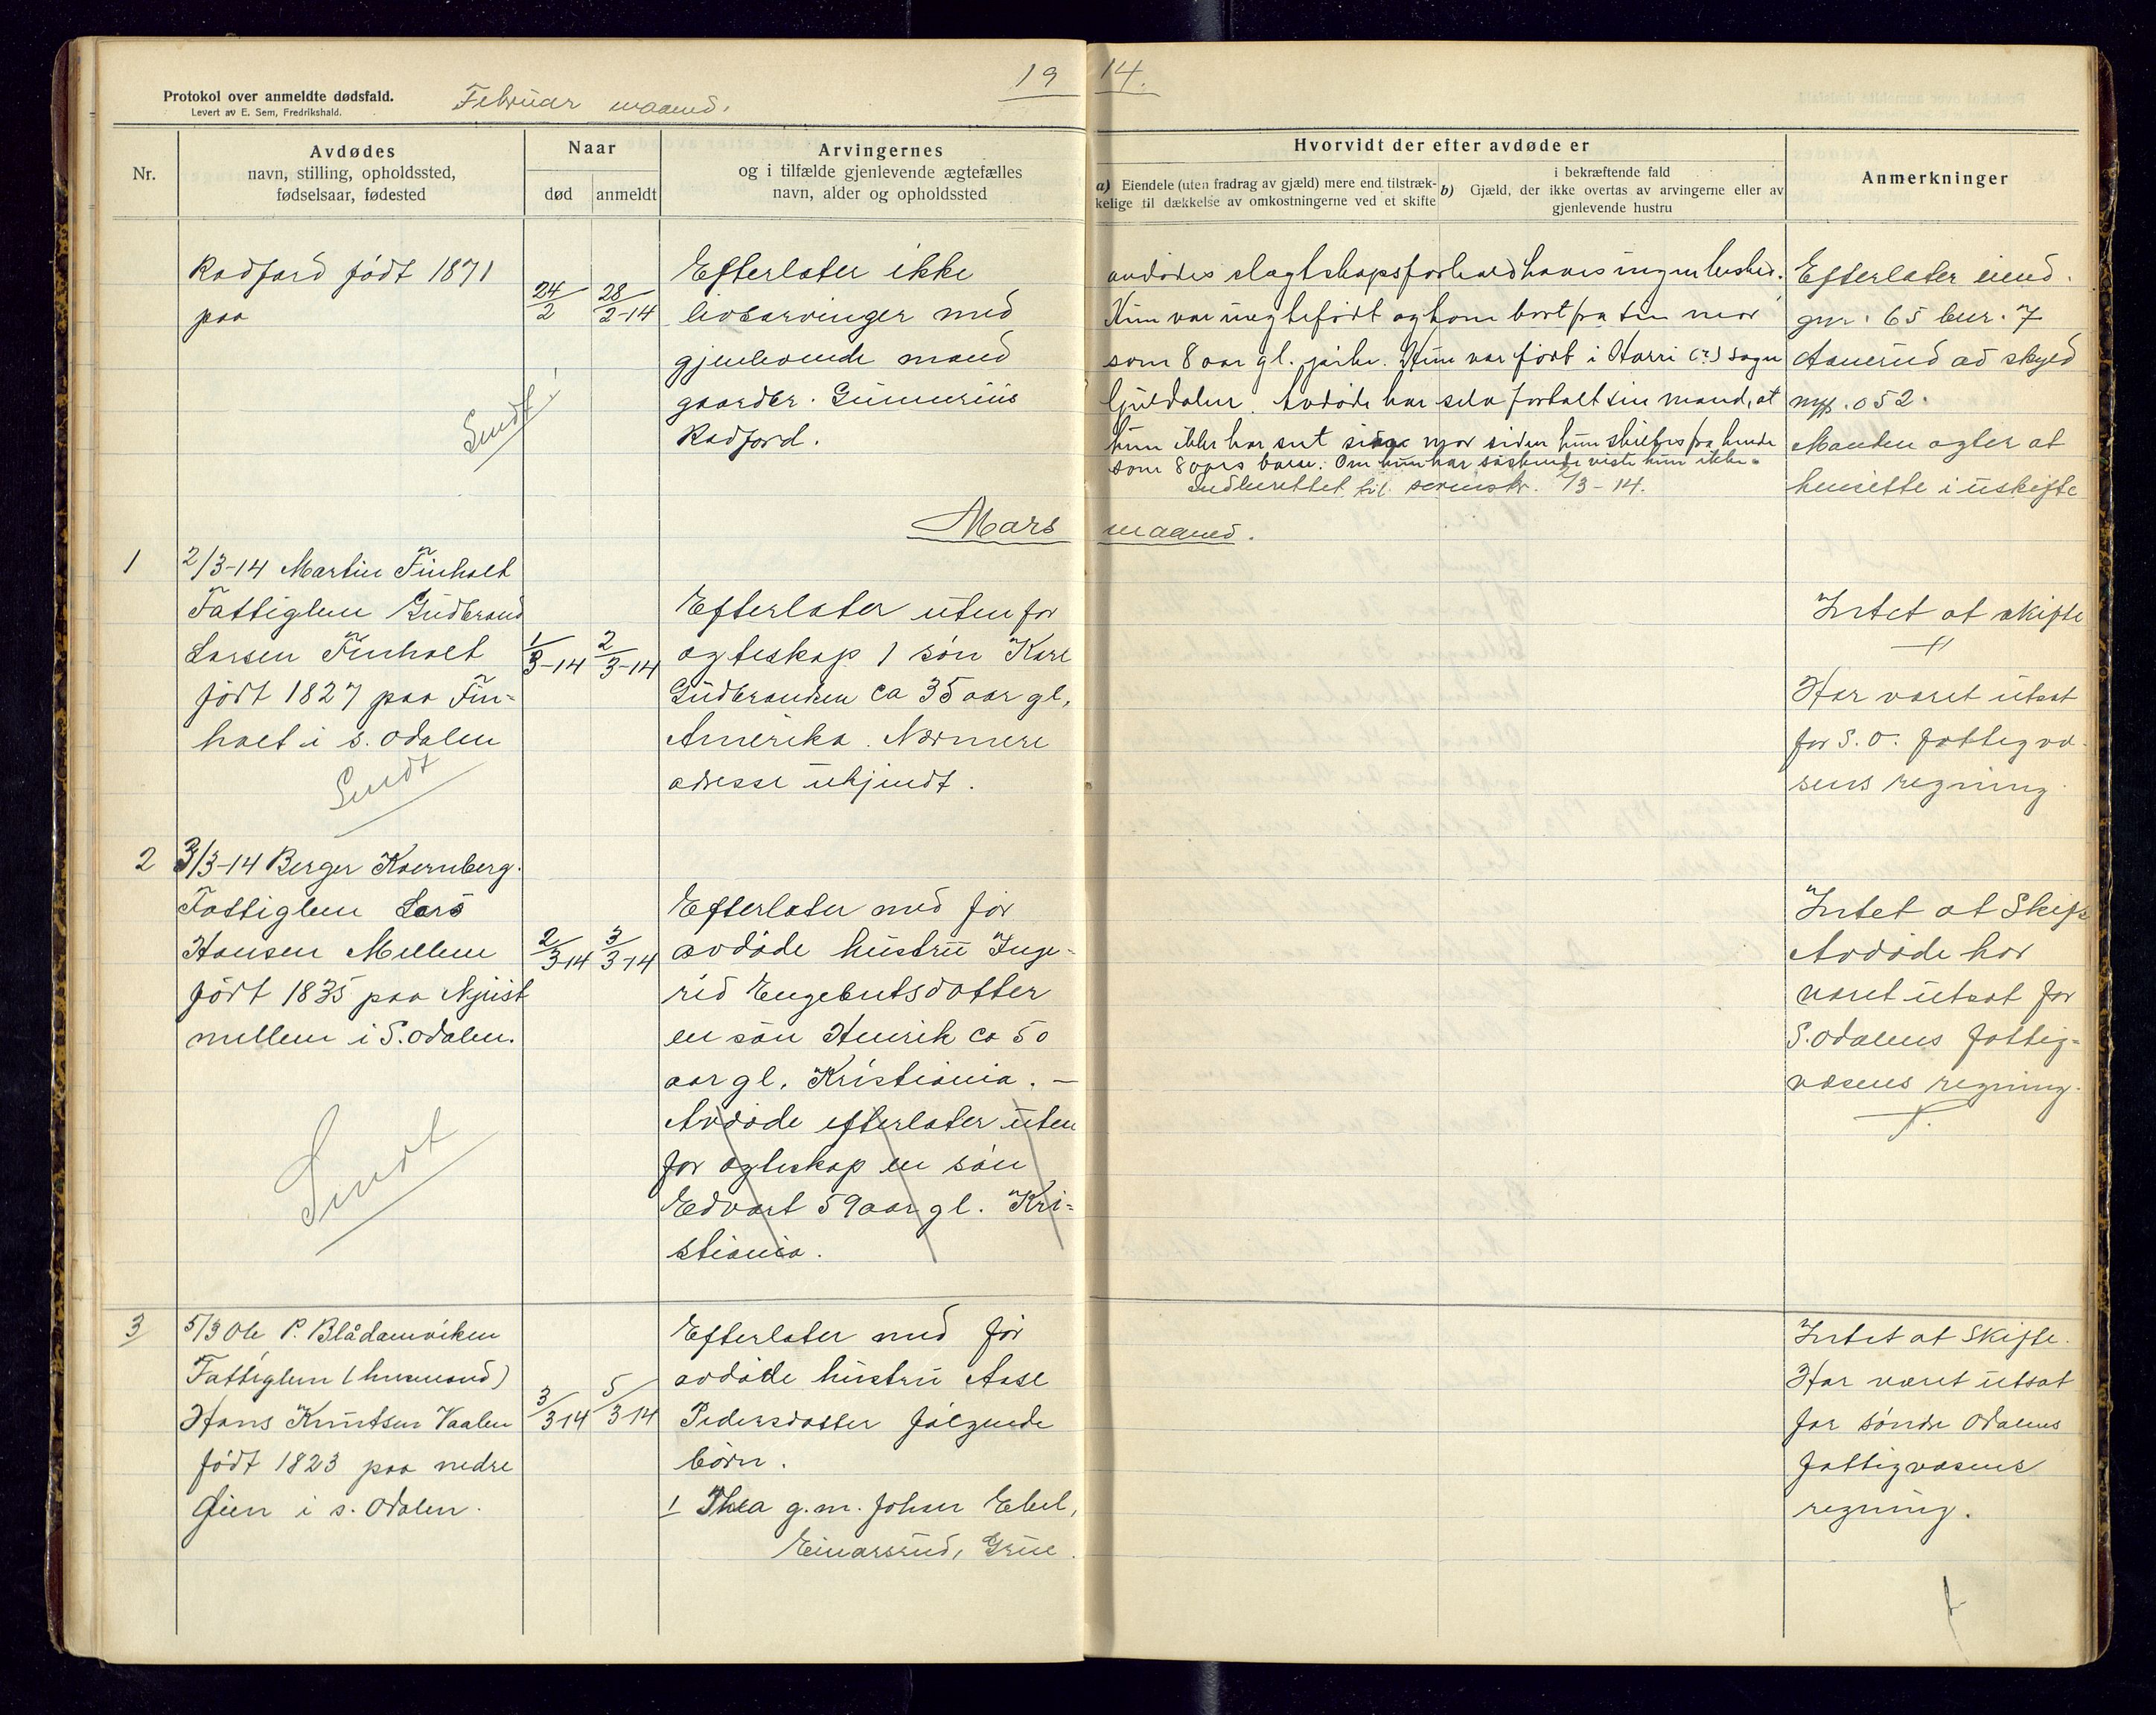 19 14.
Protokol over anmeldte dødsfald.
Levert av E. Sem, Fredrikshald.
Februar maaned.
Nr.
Avdødes
navn, stilling, opholdssted,
fødselsaar, fødested
Naar
død
anmeldt
Arvingernes
og i tilfælde gjenlevende ægtefælles
navn, alder og opholdssted
Hvorvidt der efter avdøde er
a) Eiendele (uten fradrag av gjæld) mere end tilstræk-
kelige til dækkelse av omkostningerne ved et skifte
i bekræftende fald
b) Gjæld, der ikke overtas av arvingerne eller av
gjenlevende hustru
Anmerkninger
Radford født 1871
paa
Sendt
24/2
28/2-14
Efterlater ikke
livsarvinger med
gjenlevende mand
gaardbr. Gunnerius
Radford.
avdødes slegtskapsforhold haves ingen beshed.
Hun var uegtefødt og kom bort fra sin mor
som 8 aar gl. pike. Hun var født i Harri (?) sogn
Guldalen. Avdøde har selv fortalt sin mand, at
hun ikke har set sin mor siden hun skiltes fra hende
som 8 aars barn. Om hun har søskende viste hun ikke.
Indberettet til sorenskr. /3-14.
Efterlater eiend.
gnr. 65 bnr. 7
Aanerud ad skyld
mk. 052.
Manden agter at
hensitte i uskifte
Mars maaned.
1
2/3-14 Martin Finholt
Fattiglem Gudbrand
Larsen Finholt
født 1827 paa Fin-
holt i s. Odalen
Sendt
1/3-14
2/3-14
Efterlater uten for
ægteskap 1 søn Karl
Gudbrandsen ca 35 aar gl,
Amerika. Nærmere
adresse ukjendt.
Intet at skifte
Har været utsat
for S. O. fattigvæ-
sens regning
2
3/3-14 Berger Kvernberg.
Fattiglem Lars
Hansen Mellem
født 1835 paa Njust
mellem i S. Odalen.
Sendt
2/3-14
3/3-14
Efterlater med før
avdøde hustru Inge-
rid Engebretsdatter
en søn Henrik ca 50
aar gl. Kristiania. —
Avdøde efterlater uten
for ægteskap en søn
Edvart 59 aar gl. Kri-
stiania.
Intet at Skifte
Avdøde har
været utsat for
S. Odalens fattig-
væsens regning.
3
5/3 Ole P. Blådamviken
Fattiglem (husmand)
Hans Knutsen Vaalen
født 1823 paa nedre
Øien i s. Odalen.
3/3-14
5/3-14
Efterlater med før
avdøde hustru Aase
Pedersdatter følgende
børn.
1 Thea g.m. Johan Ebel,
Einarsrud, Grue.
Intet at Skifte.
Har været utsat
for søndre Odalens
fattigvæsens
regning.